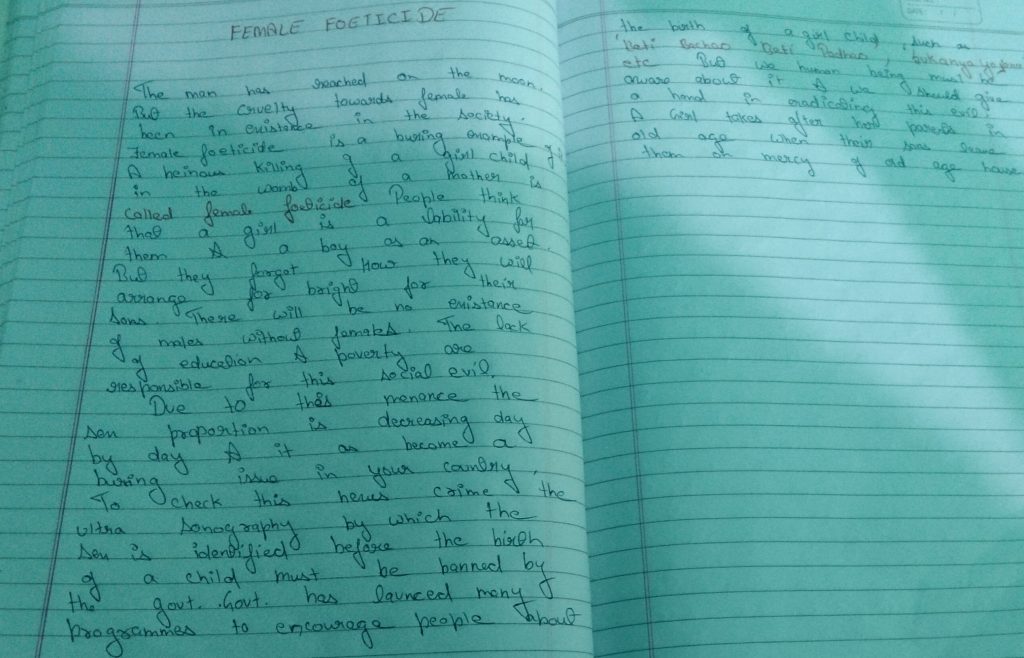 FEMALE FOETICIDE
The man has reached on the moon.
But the cruelty towards female has
been in existance in the society.
Female foeticide is a buring example of
A heinous killing of a girl child
in the womb of a mother is
called female foeticide People think
that a girl is a lability for
them & a boy as an asset.
But they forgot How they will
arrange for bright for their
sons. There will be no existance
of males without females. The lack
of education & poverty are
responsible for this social evil.
Due to this menance the
sex proportion is decreasing day
by day & it as become a
buring issue in your country.
To check this henus crime the
ultra sonography by which the
sex is identified before the birth
of a child must be banned by
the govt. Govt. has launced many
programmes to encourage people about
the birth of a girl child, such as
'Beti Bachao Beti Padhao, sukanya yojana
etc But we human being must be
aware about it & we should give
a hand in eradicating this evil.
A Girl takes after her parents in
old age when their sons leave
them on mercy of old age house